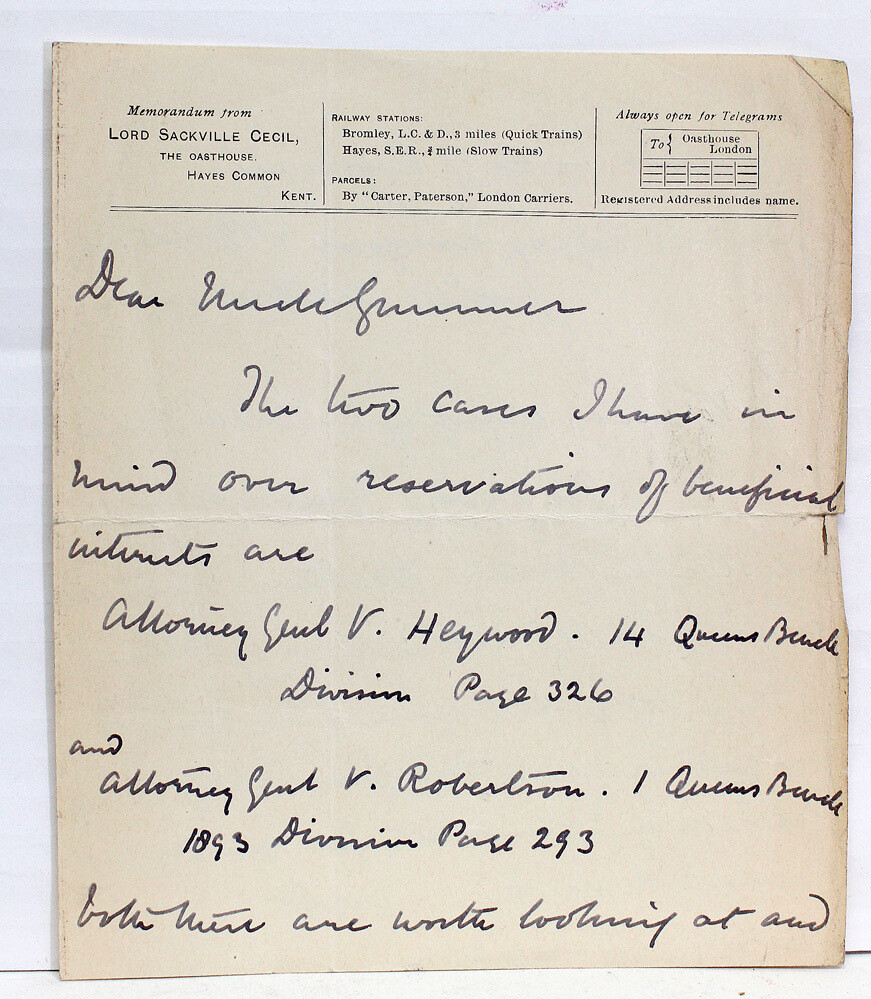 Memorandum from
LORD SACKVILLE CECIL,
THE OASTHOUSE.
HAYES COMMON
KENT.
RAILWAY STATIONS:
Bromley, L.C. & D., 3 miles (Quick Trains)
Hayes, S.E.R., ¾ mile (Slow Trains)
PARCELS:
By "Carter, Paterson," London Carriers.
Always open for Telegrams
To { Oasthouse
London
Registered Address includes name.
Dear Uncle
The two cases I have in
mind over reservations of beneficial
interests are
Attorney Genl V. Heywood. 14 Queens Bench
Division Page 326
and
Attorney Genl V. Robertson. 1 Queens Bench
1893 Division Page 293
both these are worth looking at and